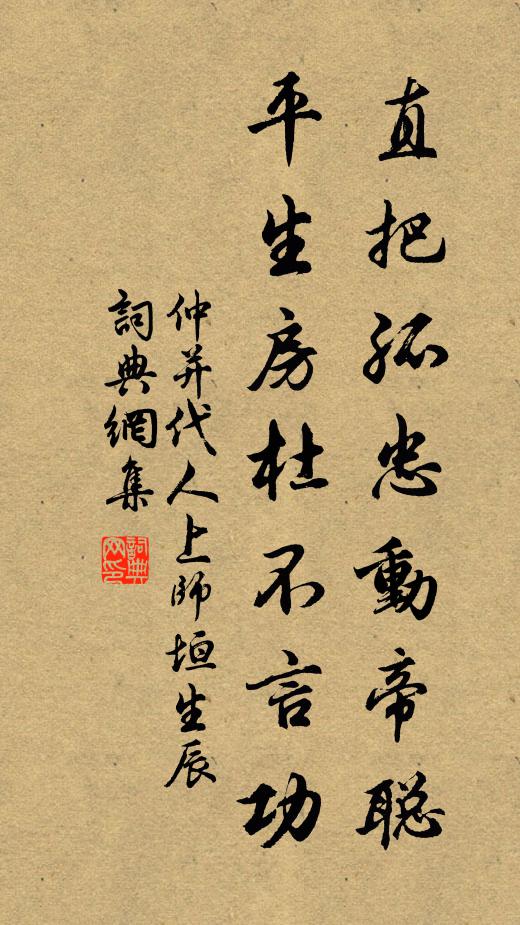 直把孤忠動帝聡
平生房杜不言功
仲并代人上師垣生辰
詞典網集
詞典網印